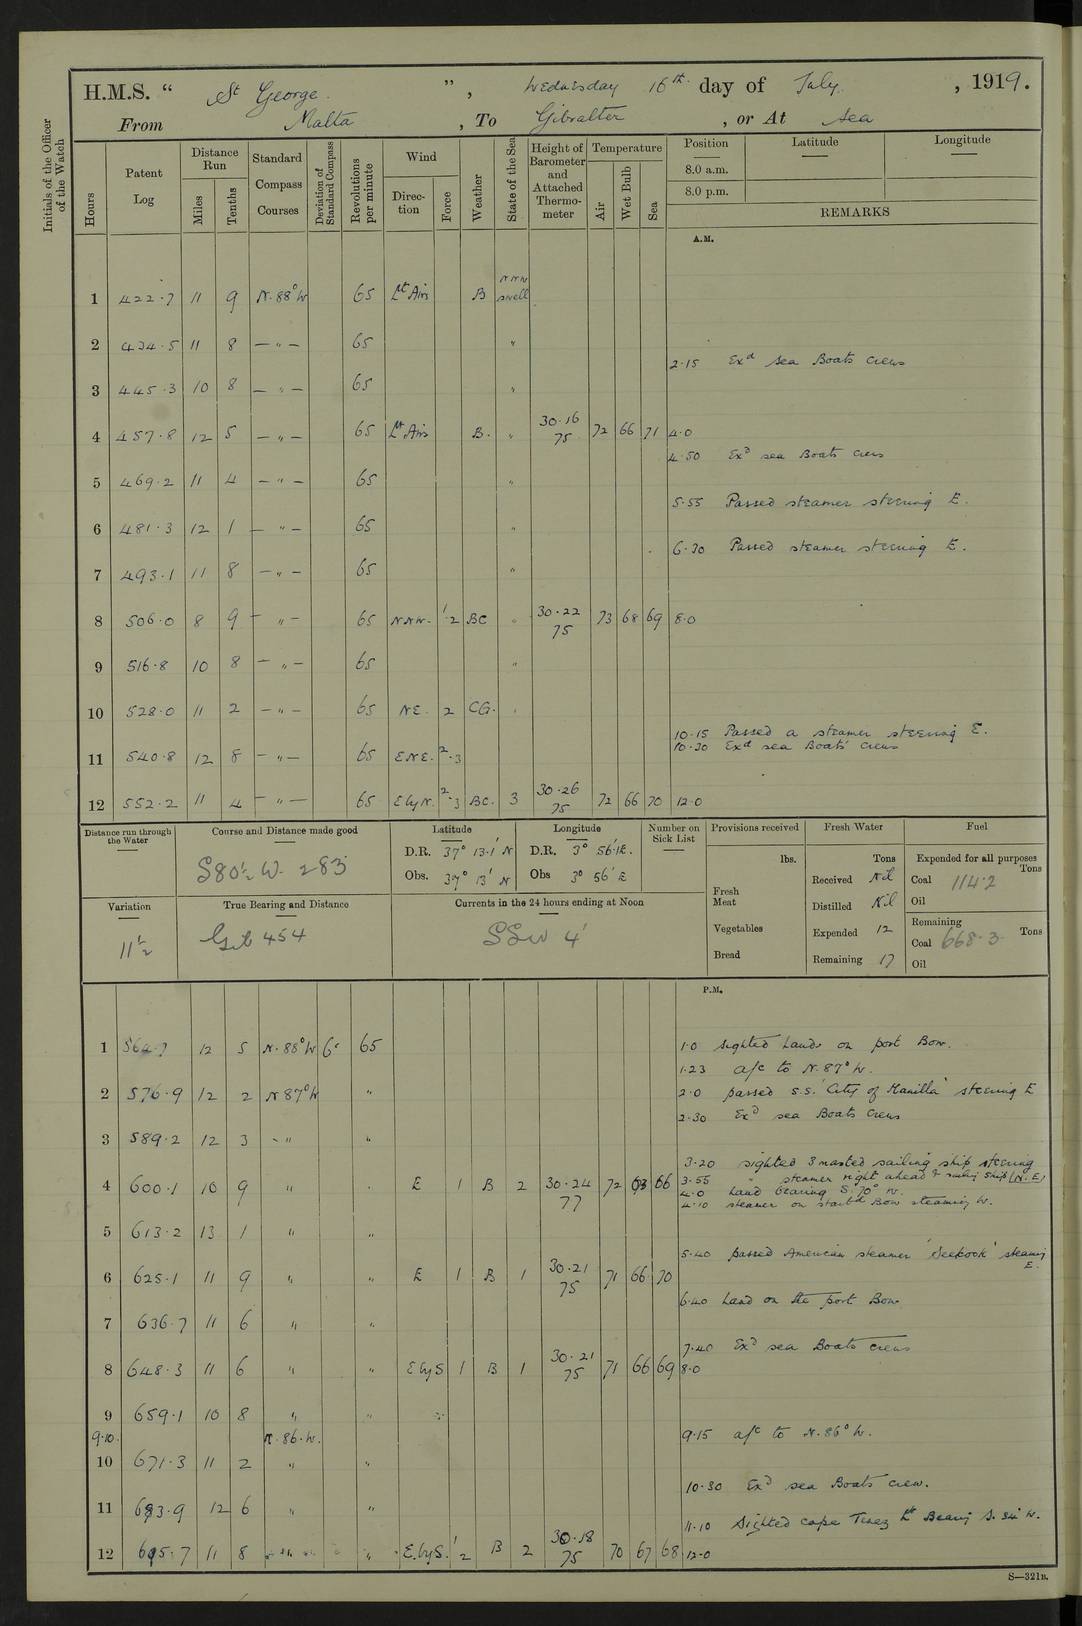 H.M.S. “ St George ”, Wednesday 16th day of July, 1919.
From Malta, To Gibralter, or At Sea
Initials of the Officer of the Watch
Hours
Patent Log
Distance Run
Miles
Tenths
Standard Compass Courses
Deviation of Standard Compass
Revolutions per minute
Wind
Direction
Force
Weather
State of the Sea
Height of Barometer and Attached Thermometer
Temperature
Air
Wet Bulb
Sea
Position Latitude Longitude
8.0 a.m.
8.0 p.m.
REMARKS
A.M.
1 422.7 11 9 N.88°W 65 Lt Airs B NNW swell
2 434.5 11 8 — " — 65 "
2.15 Exd sea Boats crews
3 445.3 10 8 — " — 65 "
4 457.8 12 5 — " — 65 Lt Airs B. " 30.16 75 72 66 71 4.0
4.50 Exd sea Boats crews
5 469.2 11 4 — " — 65 "
5.55 Passed steamer steering E.
6 481.3 12 1 — " — 65 "
6.30 Passed steamer steering E.
7 493.1 11 8 — " — 65 "
8 506.0 8 9 — " — 65 NNW. 1.2 BC " 30.22 75 73 68 69 8.0
9 516.8 10 8 — " — 65 "
10 528.0 11 2 — " — 65 NE. 2 CG. "
10.15 Passed a steamer steering E.
10.30 Exd sea Boats crews
11 540.8 12 8 — " — 65 ENE. 2.3
12 552.2 11 4 — " — 65 E by N. 2.3 BC. 3 30.26 75 72 66 70 12.0
Distance run through the Water
Course and Distance made good
S80½ W. 283
Latitude
D.R. 37° 13.1' N
Obs. 37° 13' N
Longitude
D.R. 3° 56'.1E.
Obs 3° 56' E
Number on Sick List
Provisions received
lbs.
Fresh Meat
Vegetables
Bread
Fresh Water
Tons
Received Nil
Distilled Nil
Expended 12
Remaining 17
Fuel
Expended for all purposes
Tons
Coal 114.2
Oil
Remaining
Coal 668.3 Tons
Oil
Variation
11½
True Bearing and Distance
Gib 454
Currents in the 24 hours ending at Noon
SSW 4'
P.M.
1 564.7 12 5 N.88°W 65
1.0 sighted land on port Bow.
1.23 a/c to N.87°W.
2 576.9 12 2 N 87°W "
2.0 passed S.S. 'City of Manilla' steering E
2.30 Exd sea Boats crews
3 589.2 12 3 - " "
3.20 sighted 3 masted sailing ship steering (N.E)
4 600.1 10 9 " " E 1 B 2 30.24 77 72 63 66
3.55 " steamer right ahead & sailing ship
4.0 Land bearing S.70° W.
4.10 steamer on starbd Bow steaming W.
5 613.2 13 1 " "
5.40 passed American steamer 'Seekonk' steaming E.
6 625.1 11 9 " " E 1 B 1 30.21 75 71 66 70
6.40 Land on the port Bow
7 636.7 11 6 " "
7.40 Exd sea Boats crews
8 648.3 11 6 " " E by S 1 B 1 30.21 75 71 66 69 8.0
9 659.1 10 8 " "
9.10. N.86.W.
9.15 a/c to N.86°W.
10 671.3 11 2 " "
10.30 Exd sea Boats crew.
11 683.9 12 6 " "
11.10 Sighted Cape Tenez Lt Bearing S. 34° W.
12 695.7 11 8 " " E. by S. 1.2 B 2 30.18 75 70 67 68 12.0
S—321B.